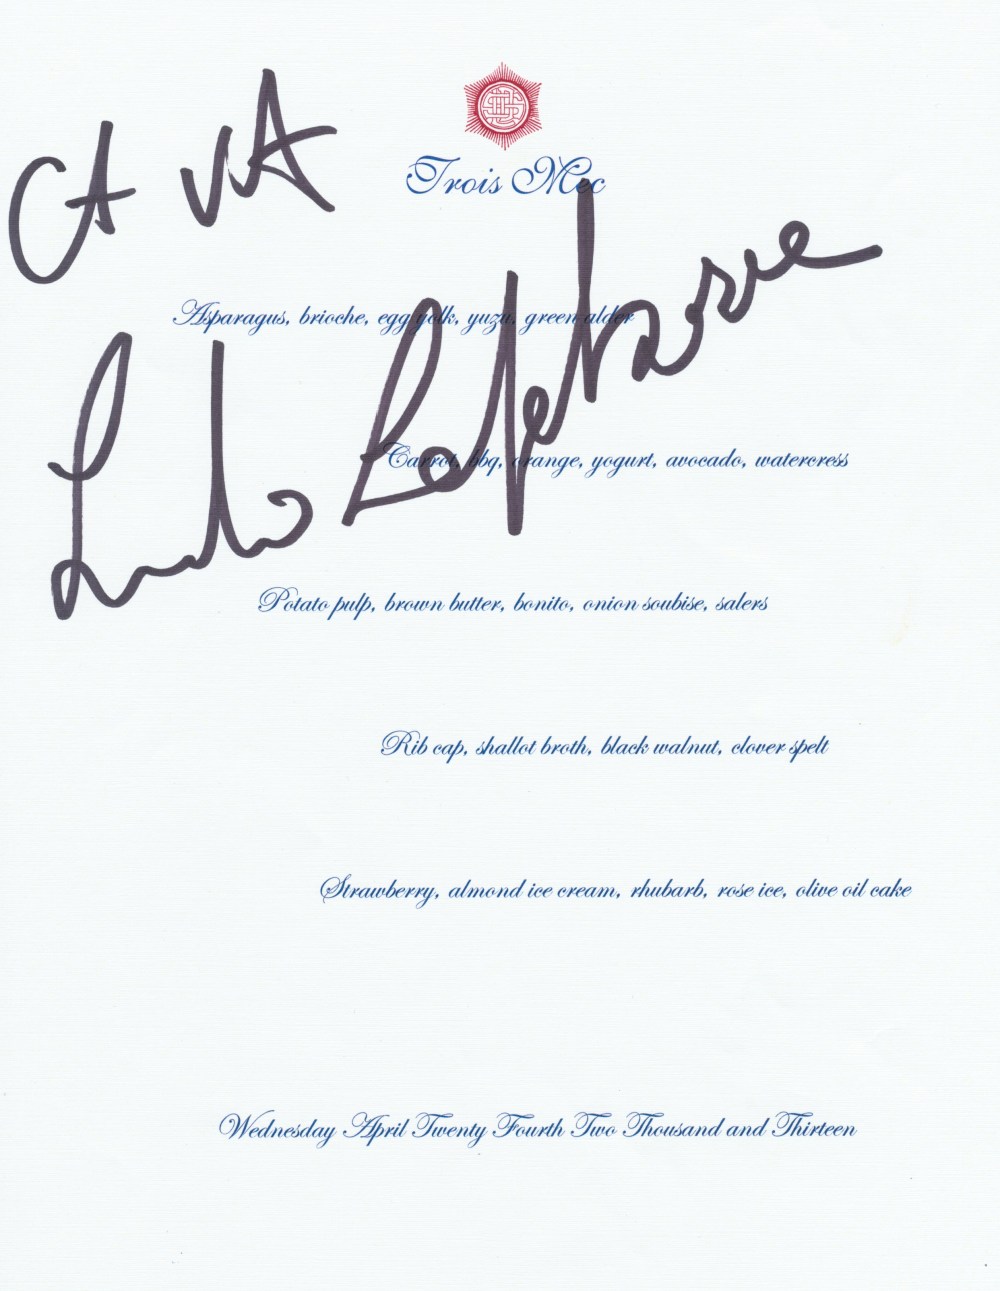 CA VA
Trois Mec
Asparagus, brioche, egg yolk, yuzu, green alder
Ludo Lefebvre
Carrot, bbq, orange, yogurt, avocado, watercress
Potato pulp, brown butter, bonito, onion soubise, salers
Rib cap, shallot broth, black walnut, clover spelt
Strawberry, almond ice cream, rhubarb, rose ice, olive oil cake
Wednesday April Twenty Fourth Two Thousand and Thirteen